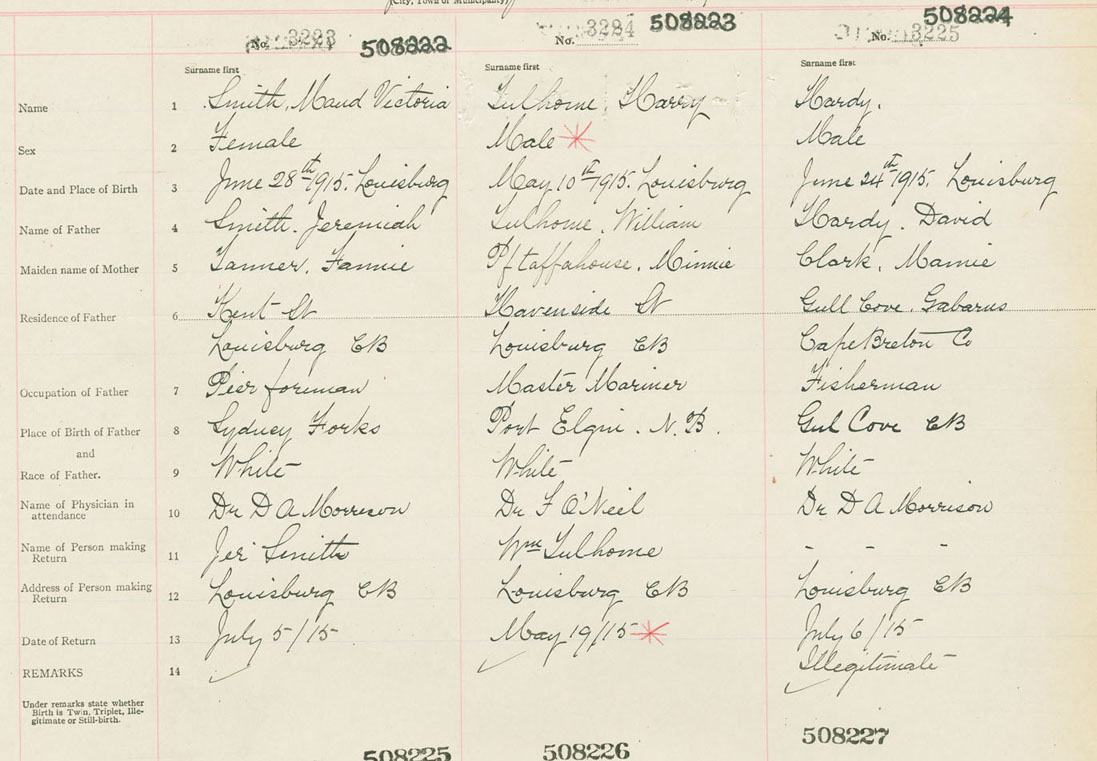 (City, Town or Municipality)
No. 3223 508222
No. 3224 508223
No. 3225 508224
Surname first Surname first Surname first
Name 1 Smith, Maud Victoria Harry Hardy.
Sex 2 Female Male Male
Date and Place of Birth 3 June 28th 1915. Louisburg May 10th 1915. Louisburg June 24th 1915. Louisburg
Name of Father 4 Smith. Jeremiah William Hardy. David
Maiden name of Mother 5 Tanner. Fannie Minnie Clark. Mamie
Residence of Father 6 Kent St Havenside St Gull Cove. Gabarus
Louisburg CB Louisburg CB Cape Breton Co
Occupation of Father 7 Pier foreman Master Mariner Fisherman
Place of Birth of Father 8 Sydney Forks Port Elgin. N.B. Gul Cove CB
and
Race of Father. 9 White White White
Name of Physician in attendance 10 Dr D A Morrison Dr F O'Neil Dr D A Morrison
Name of Person making Return 11 Jer Smith Wm - - -
Address of Person making Return 12 Louisburg CB Louisburg CB Louisburg CB
Date of Return 13 July 5/15 May 19/15 July 6/15
REMARKS 14 Illegitimate
Under remarks state whether
Birth is Twin, Triplet, Ille-
gitimate or Still-birth.
508225 508226 508227